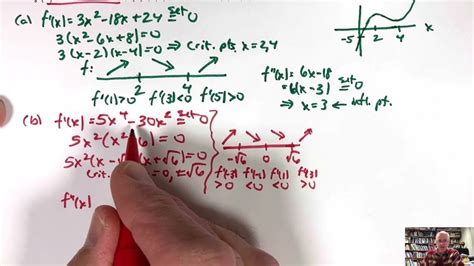 (a) f'(x) = 3x² - 18x + 24 set= 0
3(x² - 6x + 8) = 0
3(x-2)(x-4) = 0 ⇒ crit. pts. x = 2, 4
f:
2 4
f'(1)>0 f'(3)<0 f'(5)>0
-5 2 4 x
f"(x) = 6x - 18
= 6(x-3) set= 0
⇒ x = 3 ← infl. pt.
(b) f'(x) = 5x⁴ - 30x² set= 0
5x²(x² 6) = 0
5x²(x-√ x+√6) = 0
crit. = 0, ±√6
-√6 0 √6
f'(-3) f'(-1) f'(1) f'(3)
>0 <0 <0 >0
f"(x)